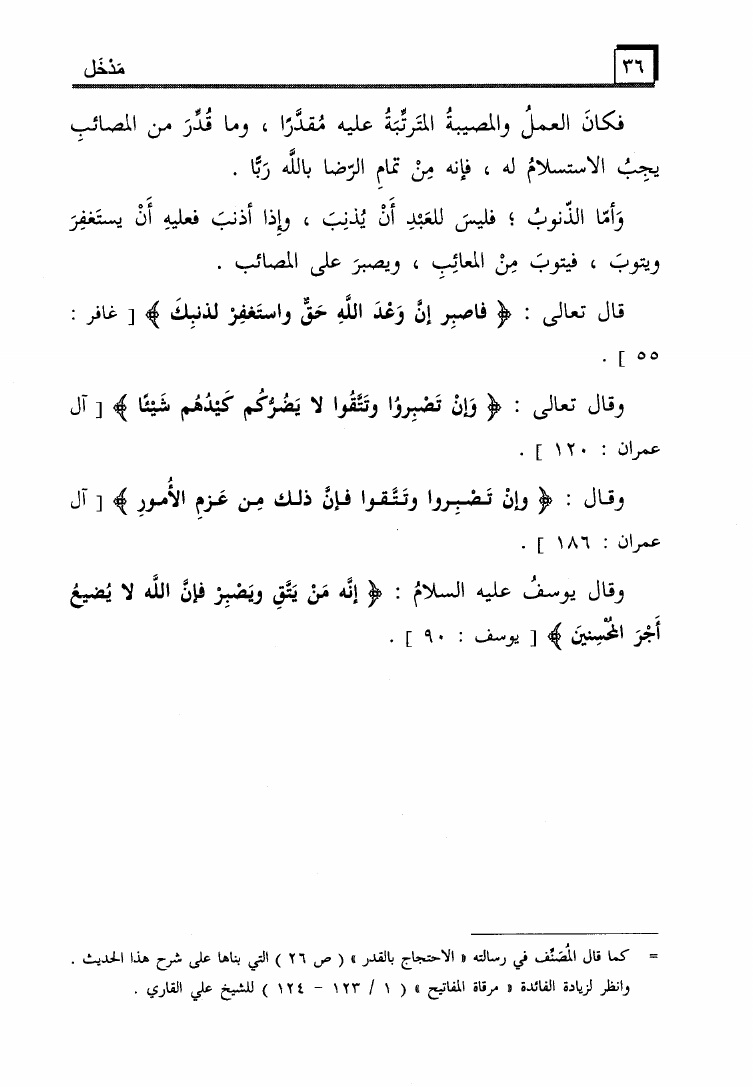 ٣٦
مَدْخَل
فكانَ العملُ والمصيبةُ المترتِّبَةُ عليه مُقدَّرًا ، وما قُدِّرَ من المصائبِ
يجِبُ الاستسلامُ له ، فإنه مِنْ تمامِ الرّضا باللَّه رَبًّا .
وَأمّا الذّنوبُ ؛ فليسَ للعَبْدِ أَنْ يُذنِبَ ، وإِذا أذنبَ فعليهِ أَنْ يستَغفِرَ
ويتوبَ ، فيتوبَ مِنْ المعائِبِ ، ويصبرَ على المصائب .
قال تعالى : ﴿ فاصبِر إنَّ وَعْدَ اللَّهِ حَقٌّ واستَغفِرْ لذنبِكَ ﴾ [ غافر :
٥٥ ] .
وقال تعالى : ﴿ وَإنْ تَصْبِروُا وتَتَّقُوا لا يَضُرُّكُم كَيْدُهُم شَيْئًا ﴾ [ آل
عمران : ١٢٠ ] .
وقال : ﴿ وإنْ تَصْبِروا وتَتَّقوا فإنَّ ذلك مِن عَزمِ الأُمورِ ﴾ [ آل
عمران : ١٨٦ ] .
وقال يوسفُ عليه السلامُ : ﴿ إنَّه مَنْ يَتَّقِ ويَصْبِرْ فإنَّ اللَّه لا يُضيعُ
أَجْرَ المُحْسِنينَ ﴾ [ يوسف : ٩٠ ] .
= كما قال المُصَنِّف في رسالته « الاحتجاج بالقدر » ( ص ٢٦ ) التي بناها على شرح هذا الحديث .
وانظر لزيادة الفائدة « مرقاة المفاتيح » ( ١ / ١٢٣ – ١٢٤ ) للشيخ علي القاري .